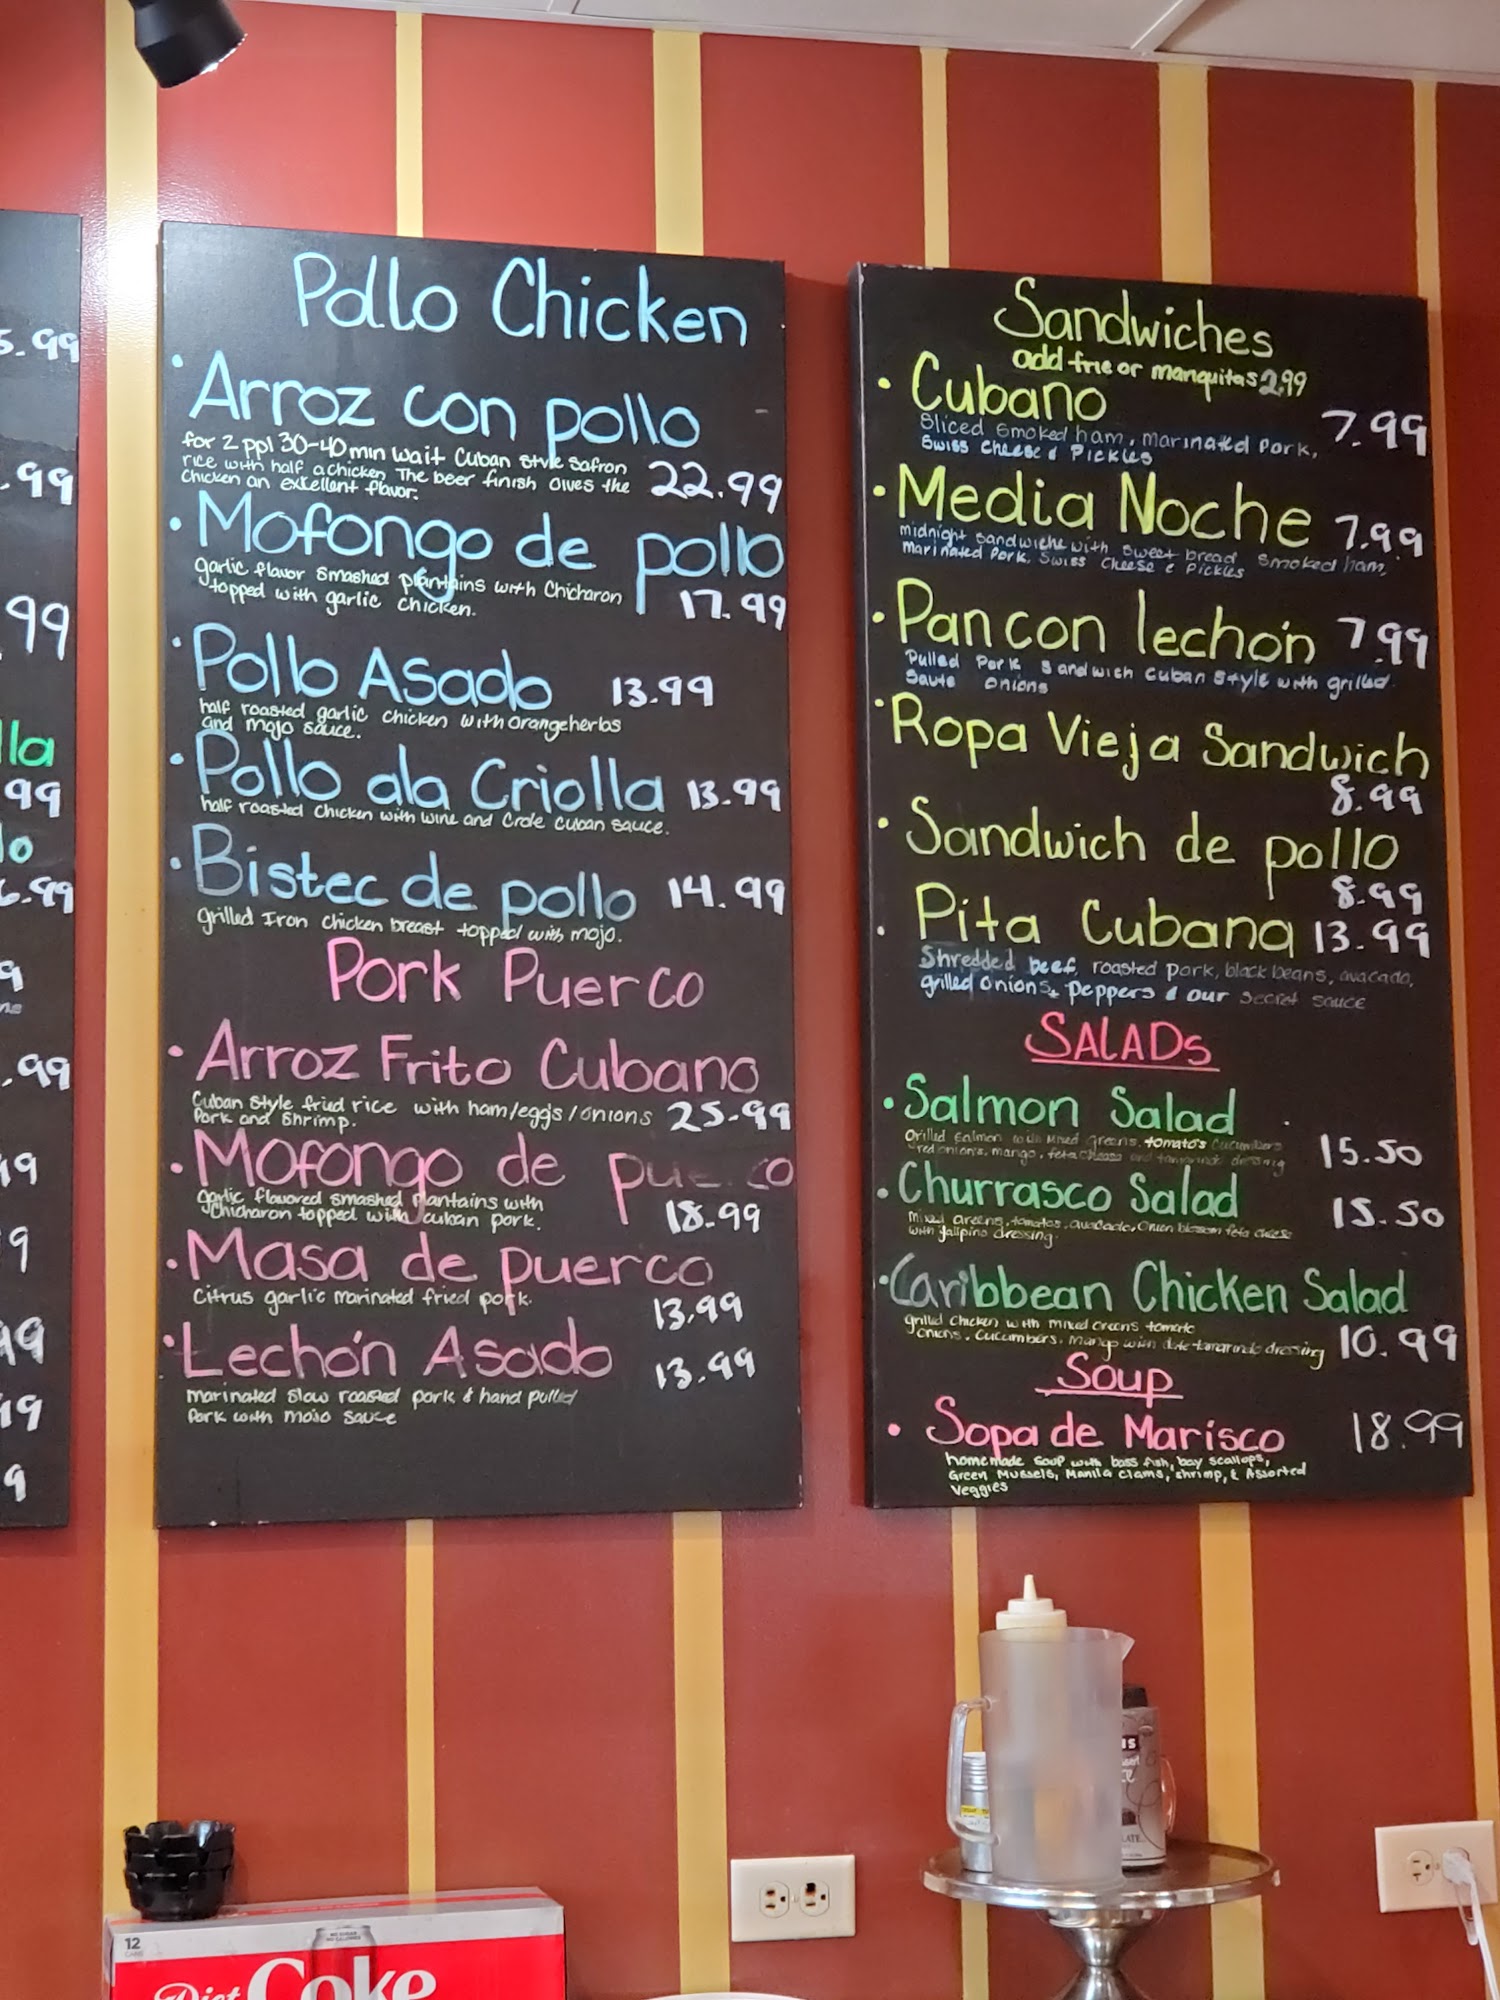 5.99
.99
.99
lla
99
lo
6.99
9
.99
49
9
99
49
9
Pollo Chicken
• Arroz con pollo
for 2 ppl 30-40 min Wait Cuban Style Safron
rice with half a chicken The beer finish Gives the
Chicken an exkellent flavor.
22.99
• Mofongo de pollo
garlic flavor smashed plantains with Chicharon
topped with garlic chicken.
17.99
• Pollo Asado 13.99
half roasted garlic chicken with orangeherbs
and mojo sauce.
• Pollo ala Criolla 13.99
half roasted chicken with wine and Crole Cuban sauce.
• Bistec de pollo 14.99
grilled Iron chicken breast topped with mojo.
Pork Puerco
• Arroz Frito Cubano
Cuban Style fried rice with ham/eggs/onions 25.99
Pork and Shrimp.
• Mofongo de puerco
garlic flavored smashed plantains with
Chicharon topped with cuban pork.
18.99
• Masa de puerco
Citrus garlic marinated fried pork.
13.99
• Lechón Asado 13.99
marinated slow roasted pork & hand pulled
Pork with mojo sauce
Sandwiches
add frie or manquitas 2.99
• Cubano 7.99
Sliced smoked ham, marinated Pork,
Swiss Cheese & Pickles
• Media Noche 7.99
midnight sandwiche with sweet bread smoked ham,
marinated Pork, Swiss Cheese & Pickles
• Pan con lechón 7.99
Pulled Pork Sandwich Cuban Style with grilled
Saute onions
• Ropa Vieja Sandwich
8.99
• Sandwich de pollo
8.99
• Pita Cubana 13.99
Shredded beef, roasted pork, black beans, avacado,
grilled onions, peppers & our secret sauce
SALADs
• Salmon Salad 15.50
Grilled Salmon with Mixed greens, tomato's cucumbers
red onions, mango, feta cheese and tamarindo dressing
• Churrasco Salad 15.50
Mixed greens, tomatos, avacado, Onion blossom feta cheese
with Jalipino dressing.
• Caribbean Chicken Salad
grilled chicken with mixed Greens tomato
onions, cucumbers, mango with date-tamarindo dressing 10.99
Soup
• Sopa de Marisco 18.99
homemade soup with bass fish, bay scallops,
Green Mussels, Manila Clams, shrimp, & Assorted
Veggies
12
NO SUGAR
NO CALORIES
Diet Coke